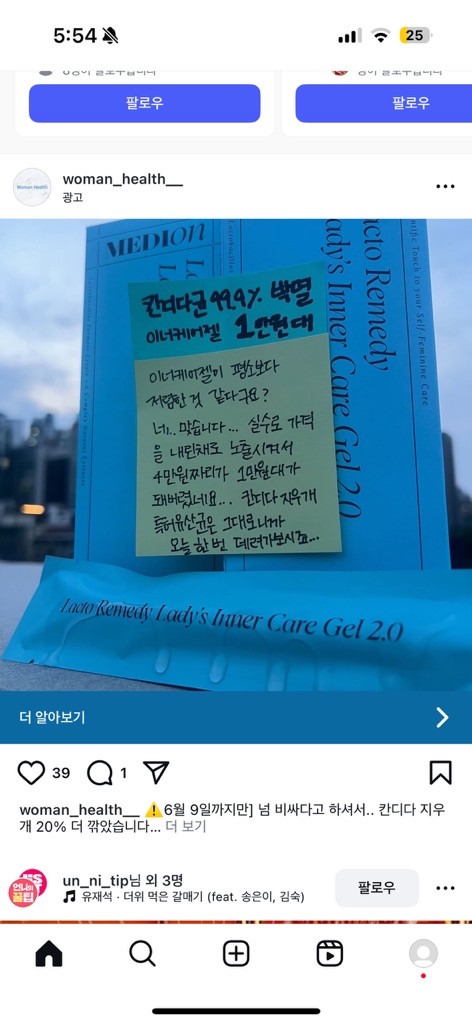 5:54
25
팔로우
팔로우
Woman Health
woman_health__
광고
MEDION
Lacto Remedy
Lady's Inner Care Gel 2.0
칸디다균 99.9% 박멸
이너케어젤 1만원대
이너케어젤이 평소보다
저렴한 것 같다구요?
네.. 맞습니다... 실수로 가격
을 내린채로 노출시켜서
4만원짜리가 1만원대가
돼버렸네요... 칸디다 지우개
특허유산균은 그대로니까
오늘 한번 데려가보시죠...
Lacto Remedy Lady's Inner Care Gel 2.0
더 알아보기
39
1
woman_health__ ⚠️6월 9일까지만] 넘 비싸다고 하셔서.. 칸디다 지우
개 20% 더 깎았습니다... 더 보기
언니의
꿀팁
un_ni_tip님 외 3명
유재석 · 더위 먹은 갈매기 (feat. 송은이, 김숙)
팔로우